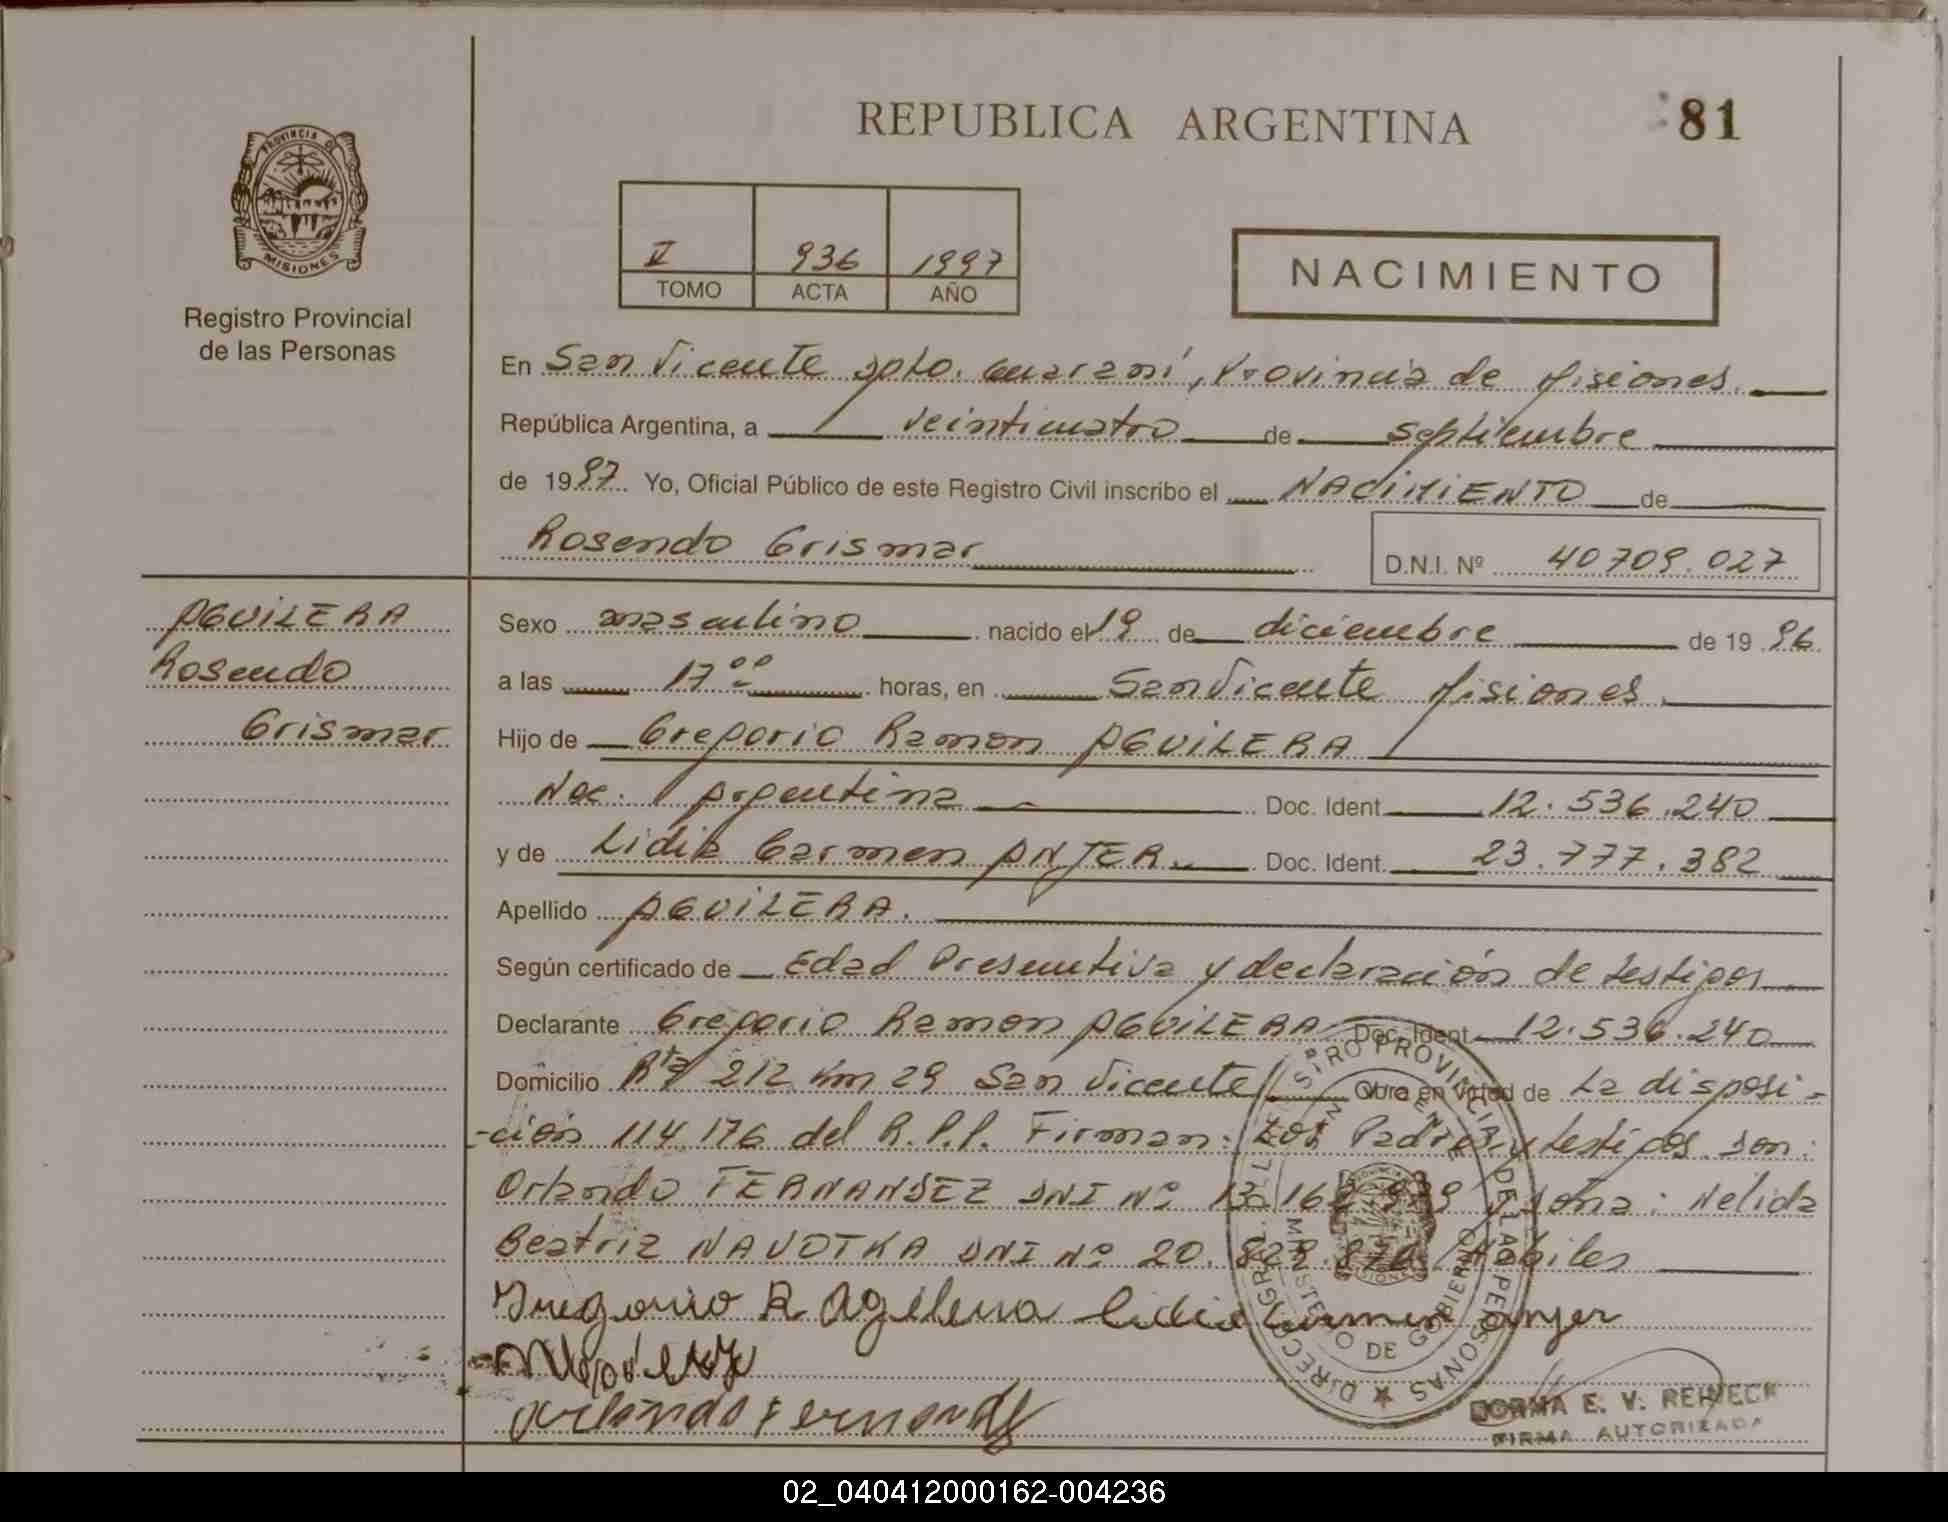 REPUBLICA ARGENTINA
81
PROVINCIA DE
MISIONES
Registro Provincial
de las Personas
V 936 1997
TOMO ACTA AÑO
NACIMIENTO
En San Vicente Dpto. Guaraní, Provincia de Misiones.
República Argentina, a veinticuatro de septiembre
de 1997 Yo, Oficial Público de este Registro Civil inscribo el NACIMIENTO de
Rosendo Grismar
D.N.I. Nº 40709.027
AGUILERA
Rosendo
Grismar
Sexo masculino nacido el 19 de diciembre de 1996
a las 17 ºº horas, en San Vicente Misiones
Hijo de Gregorio Ramon AGUILERA
Nac. Argentina Doc. Ident. 12.536.240
y de Lidia Carmen ANJER Doc. Ident. 23.777.382
Apellido AGUILERA.
Según certificado de Edad Presuntiva y declaración de testigos
Declarante Gregorio Ramon AGUILERA Doc. Ident. 12.536.240
Domicilio Rta 212 Km 29 San Vicente Obra en virtud de La disposi-
-ción 114/76 del R.P.P. Firman: Los Padres y testigos son:
Orlando FERNANDEZ DNI Nº y doña: Nelida
Beatriz NAVOTKA DNI Nº 20. Hábiles
Gregorio R Agilera Lidia Carmen anjer
Orlando Fernandez
NORMA E. V. REINECK
FIRMA AUTORIZADA
02_040412000162-004236